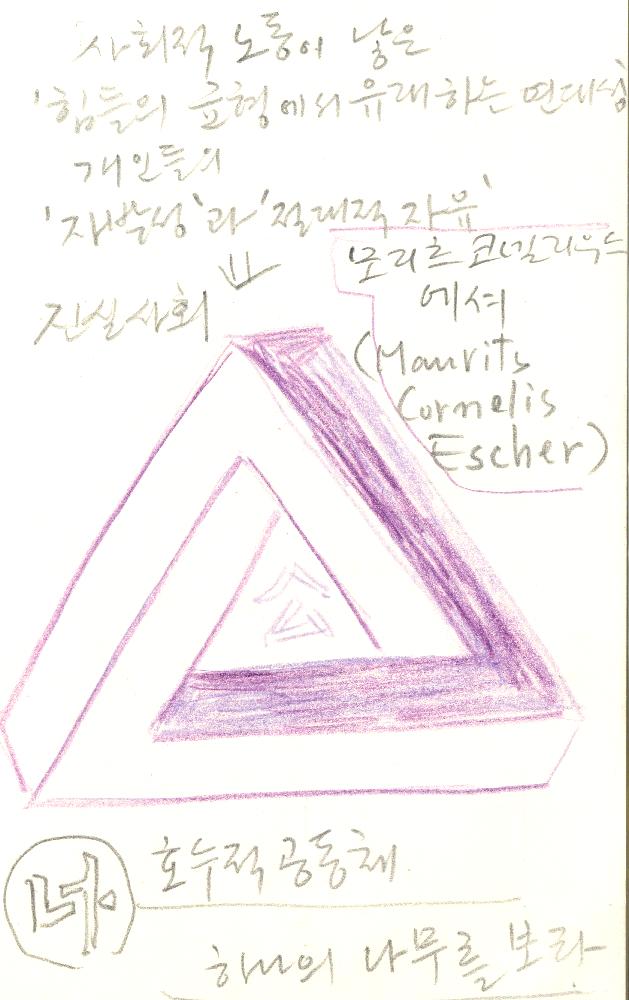 사회적 노동이 낳은
'힘들의 균형에서 유래하는 연대성'
개인들의
'자발성'과 '절대적 자유'
모리츠 코넬리우스
진실사회
에셔
(Maurits
Cornelis
Escher)
호누적 공동체
하나의 나무를 보라